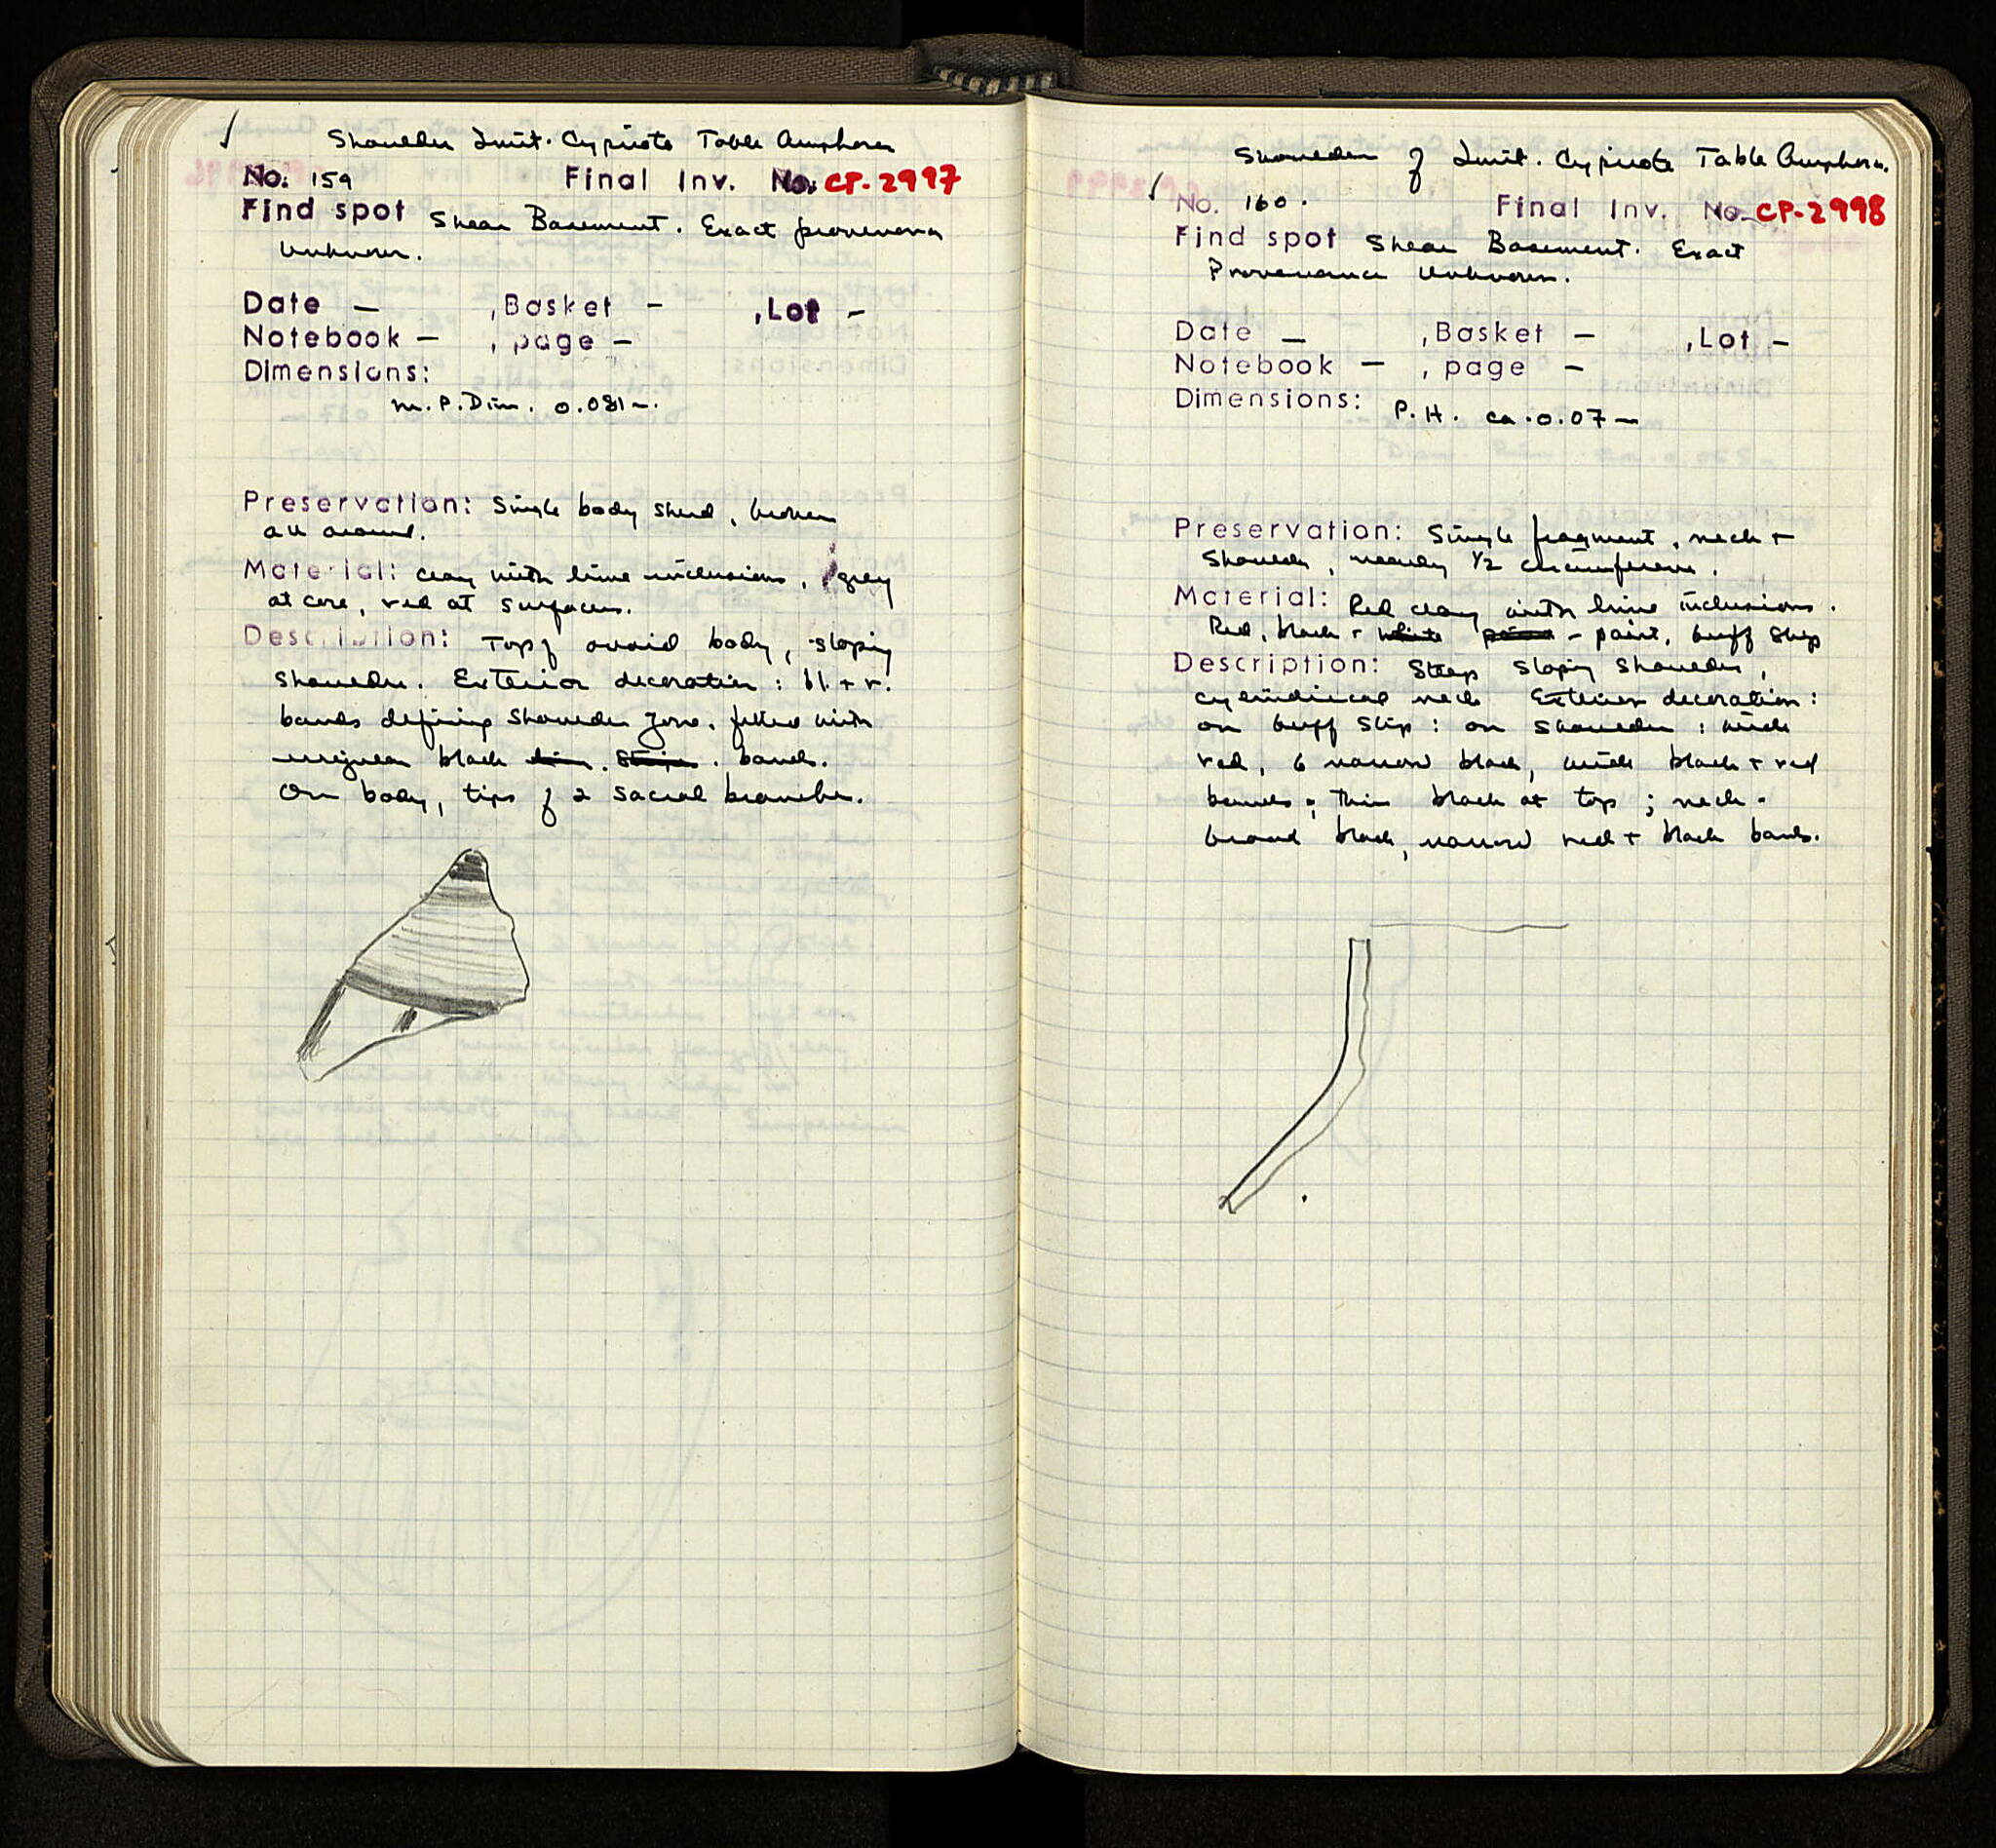 Shoulder Imit. Cypriote Table Amphora
No. 159 Final Inv. No. CP-2997
Find spot Shear Basement. Exact provenance
Unknown.
Date — , Basket — , Lot —
Notebook — , page —
Dimensions:
M.P.Dim. 0.081 —.
Preservation: Single body sherd, broken
all around.
Material: Clay with lime inclusions, grey
at core, red at surfaces.
Description: Top of ovoid body, sloping
shoulder. Exterior decoration: bl. + r.
bands defining shoulder zone, filled with
irregular black bands.
On body, tips of 2 sacral branches.
Shoulder of Imit. Cypriote Table Amphora.
No. 160. Final Inv. No. CP-2998
Find spot Shear Basement. Exact
Provenance Unknown.
Date — , Basket — , Lot —
Notebook — , page —
Dimensions: P.H. ca. 0.07 —
Preservation: Single fragment, neck +
shoulder, nearly 1/2 circumference.
Material: Red clay with lime inclusions.
Red, black + white paint, buff slip
Description: Steep sloping shoulder,
cylindrical neck Exterior decoration:
on buff slip: on shoulder: wide
red, 6 narrow black, wide black + red
bands; thin black at top; neck -
broad black, narrow red + black bands.